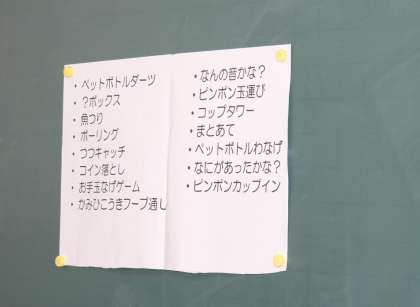 ・ペットボトルダーツ
・?ボックス
・魚つり
・ボーリング
・つつキャッチ
・コイン落とし
・お手玉なげゲーム
・かみひこうきフープ通し
・なんの音かな?
・ピンポン玉運び
・コップタワー
・まとあて
・ペットボトルわなげ
・なにがあったかな?
・ピンポンカップイン